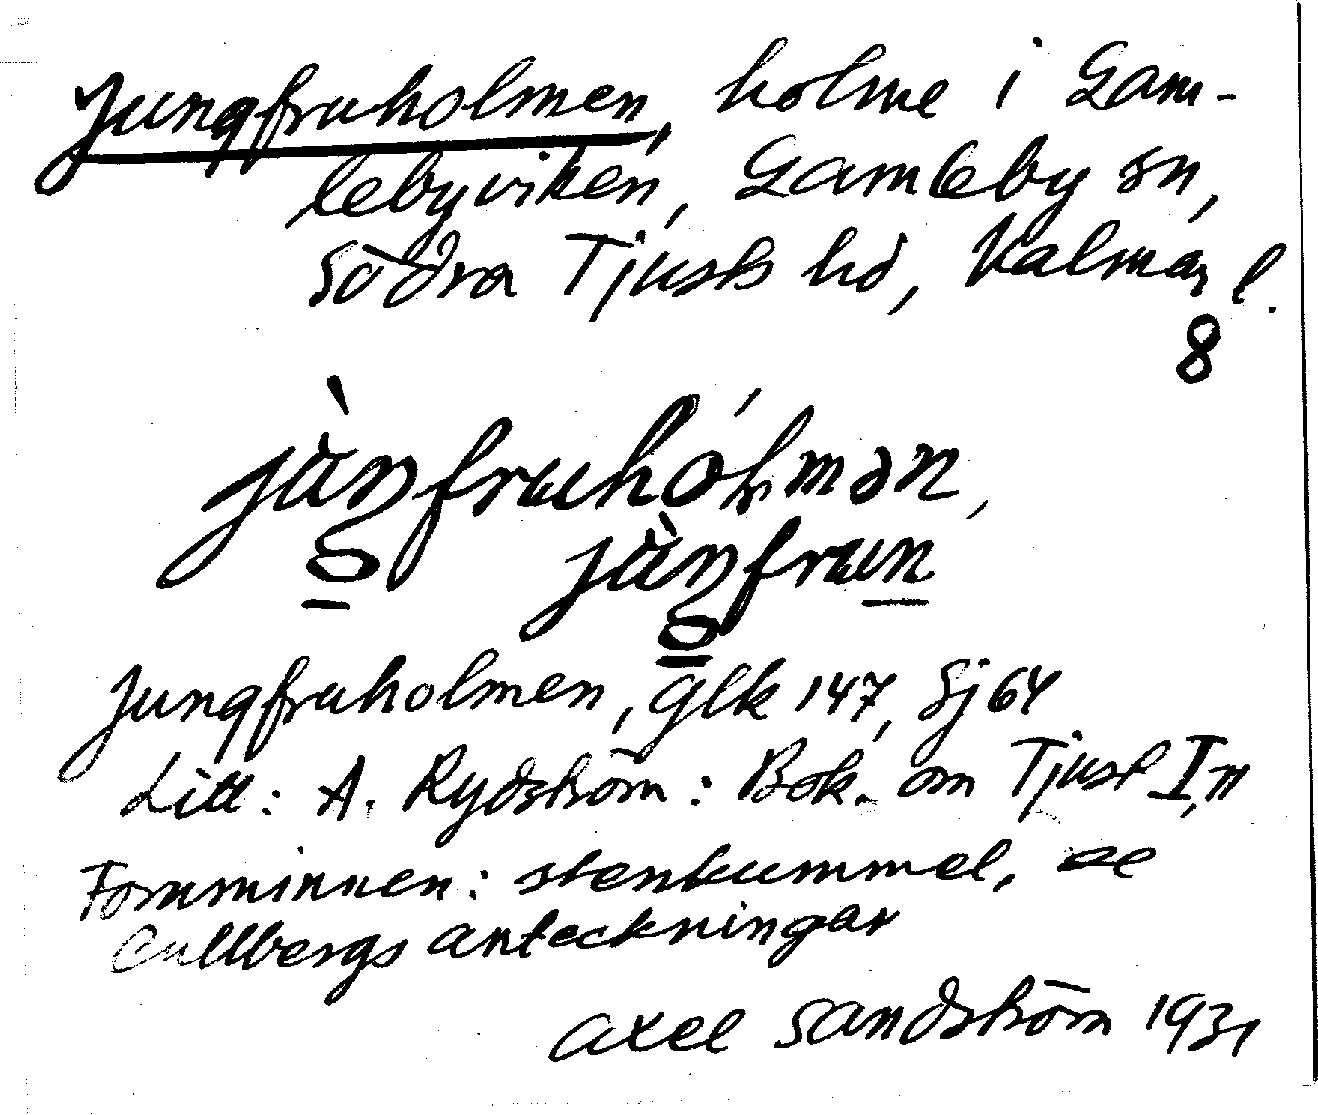 Jungfruholmen, holme i Gam-
lebyviken, Gamleby sn,
Södra Tjusts hd, Kalmar l.
8
jùŋfruhólmən,
jùŋfrun
Jungfruholmen, Glk 147, Sj 64
Litt: A. Rydström: Bok. om Tjust I,
Fornminnen: stenkummel, se
Cullbergs anteckningar
Axel Sandström 1931